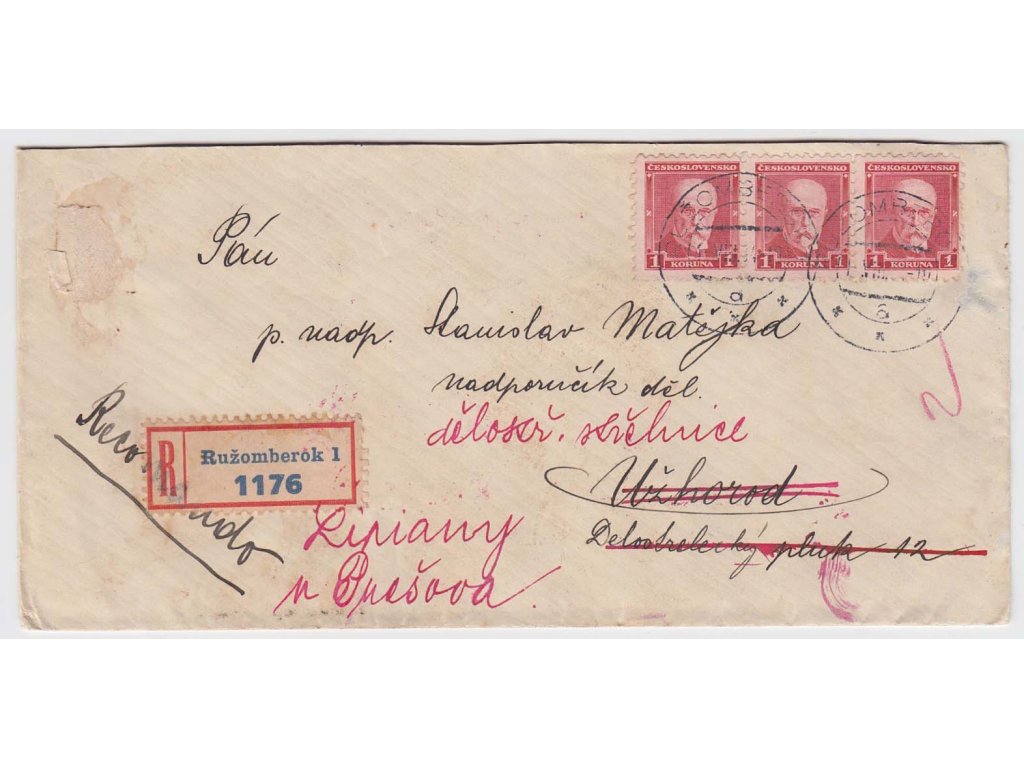 ČESKOSLOVENSKO ČESKOSLOVENSKO ČESKOSLOVENSKO
1 KORUNA 1 1 KORUNA 1 1 KORUNA 1
a a
Pán
p. nadp. Stanislav Matějka
nadporučík děl.
dělostř. střelnice
Recomando
R Ružomberok 1
1176
Užhorod
Delostrelecký pluk 12
Lipiany
u Prešova.